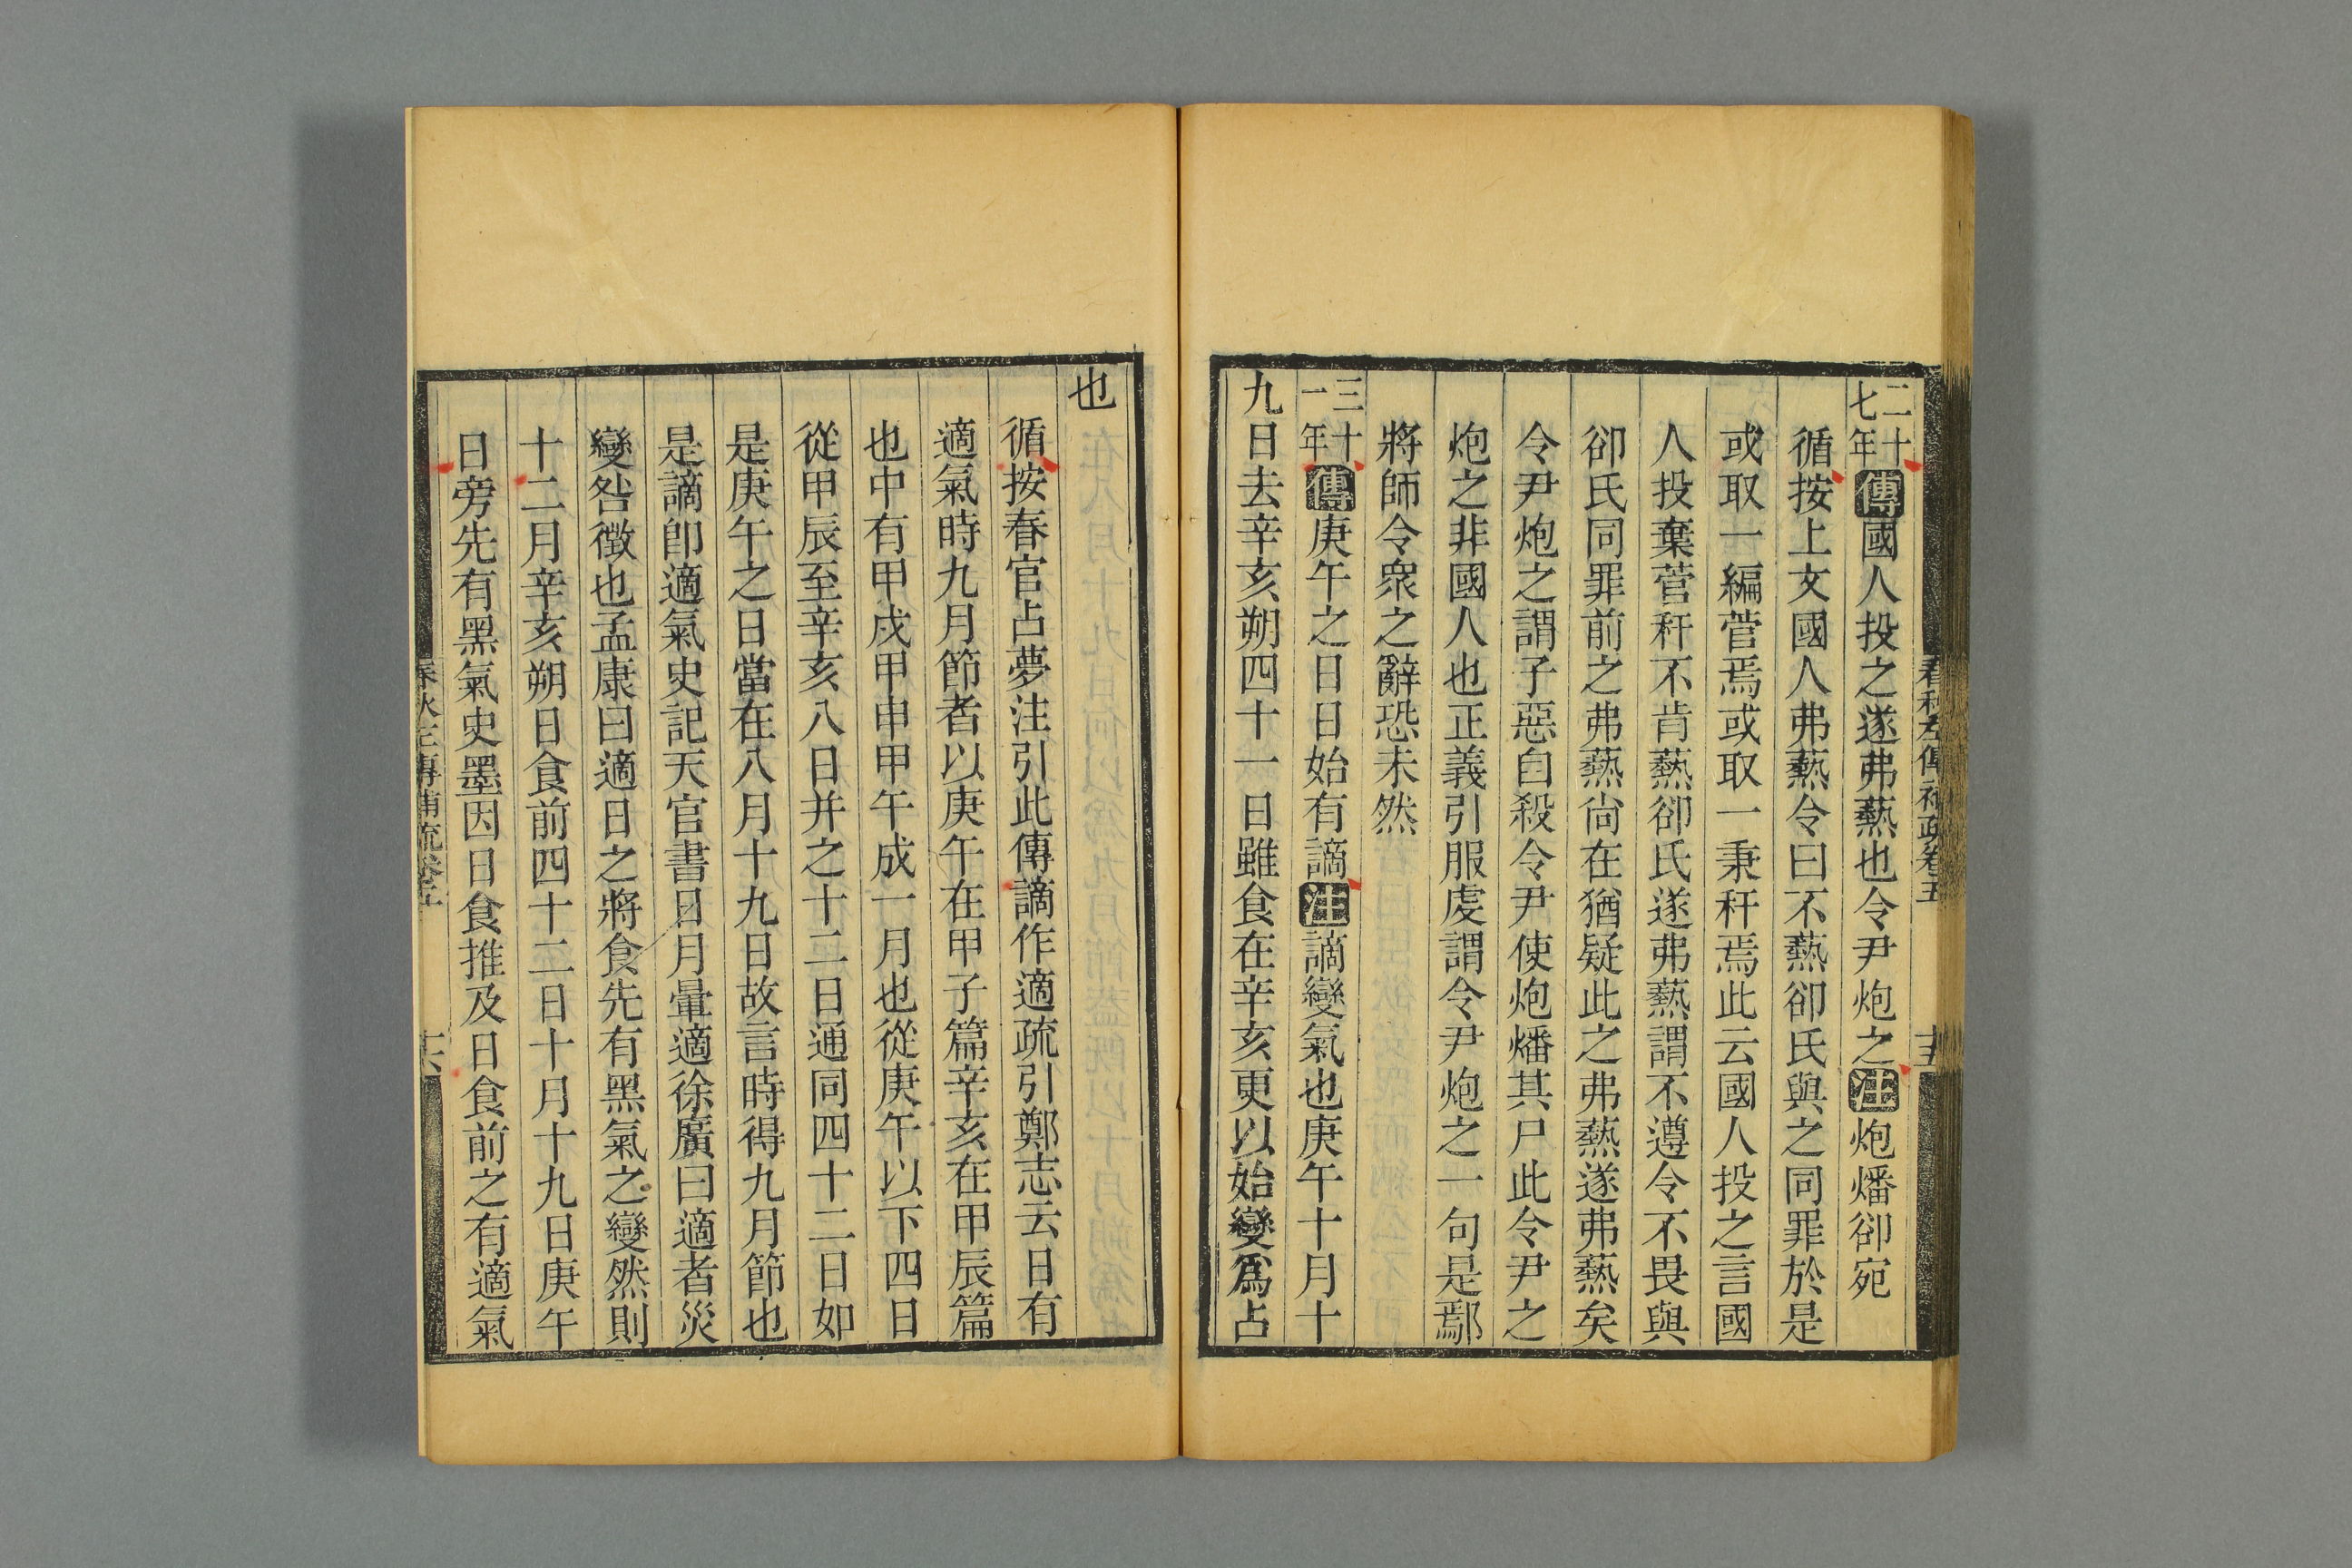 春秋左傳補疏卷五
十五
二十七年傳國人投之遂弗爇也令尹炮之注炮燔郤宛
循按上文國人弗爇令曰不爇郤氏與之同罪於是
或取一編菅焉或取一秉秆焉此云國人投之言國
人投棄菅秆不肯爇郤氏遂弗爇謂不遵令不畏與
郤氏同罪前之弗爇尙在猶疑此之弗爇遂弗爇矣
令尹炮之謂子惡自殺令尹使炮燔其尸此令尹之
炮之非國人也正義引服虔謂令尹炮之一句是鄢
將師令衆之辭恐未然
三十一年傳庚午之日日始有謫注謫變氣也庚午十月十
九日去辛亥朔四十一日雖食在辛亥更以始變爲占
也
循按春官占夢注引此傳謫作適疏引鄭志云日有
適氣時九月節者以庚午在甲子篇辛亥在甲辰篇
也中有甲戌甲申甲午成一月也從庚午以下四日
從甲辰至辛亥八日并之十二日通同四十二日如
是庚午之日當在八月十九日故言時得九月節也
是謫卽適氣史記天官書日月暈適徐廣曰適者災
變咎徵也孟康曰適日之將食先有黑氣之變然則
十二月辛亥朔日食前四十二日十月十九日庚午
日旁先有黑氣史墨因日食推及日食前之有適氣
春秋左傳補疏卷五
十六